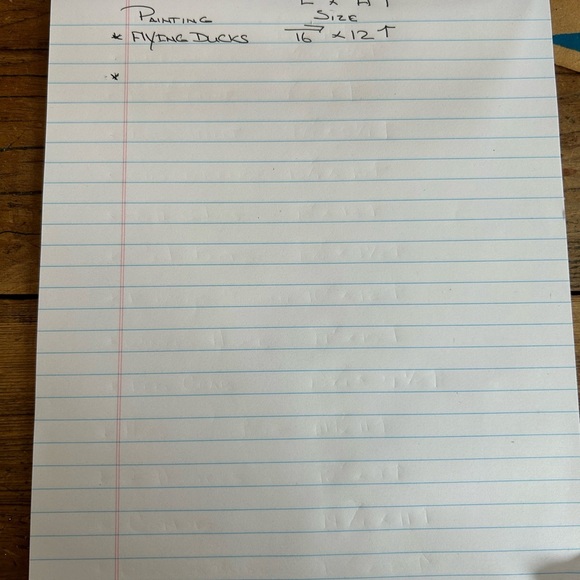 L x H ↑
PAINTING SIZE
* FLYING DUCKS 16 x 12 ↑
*